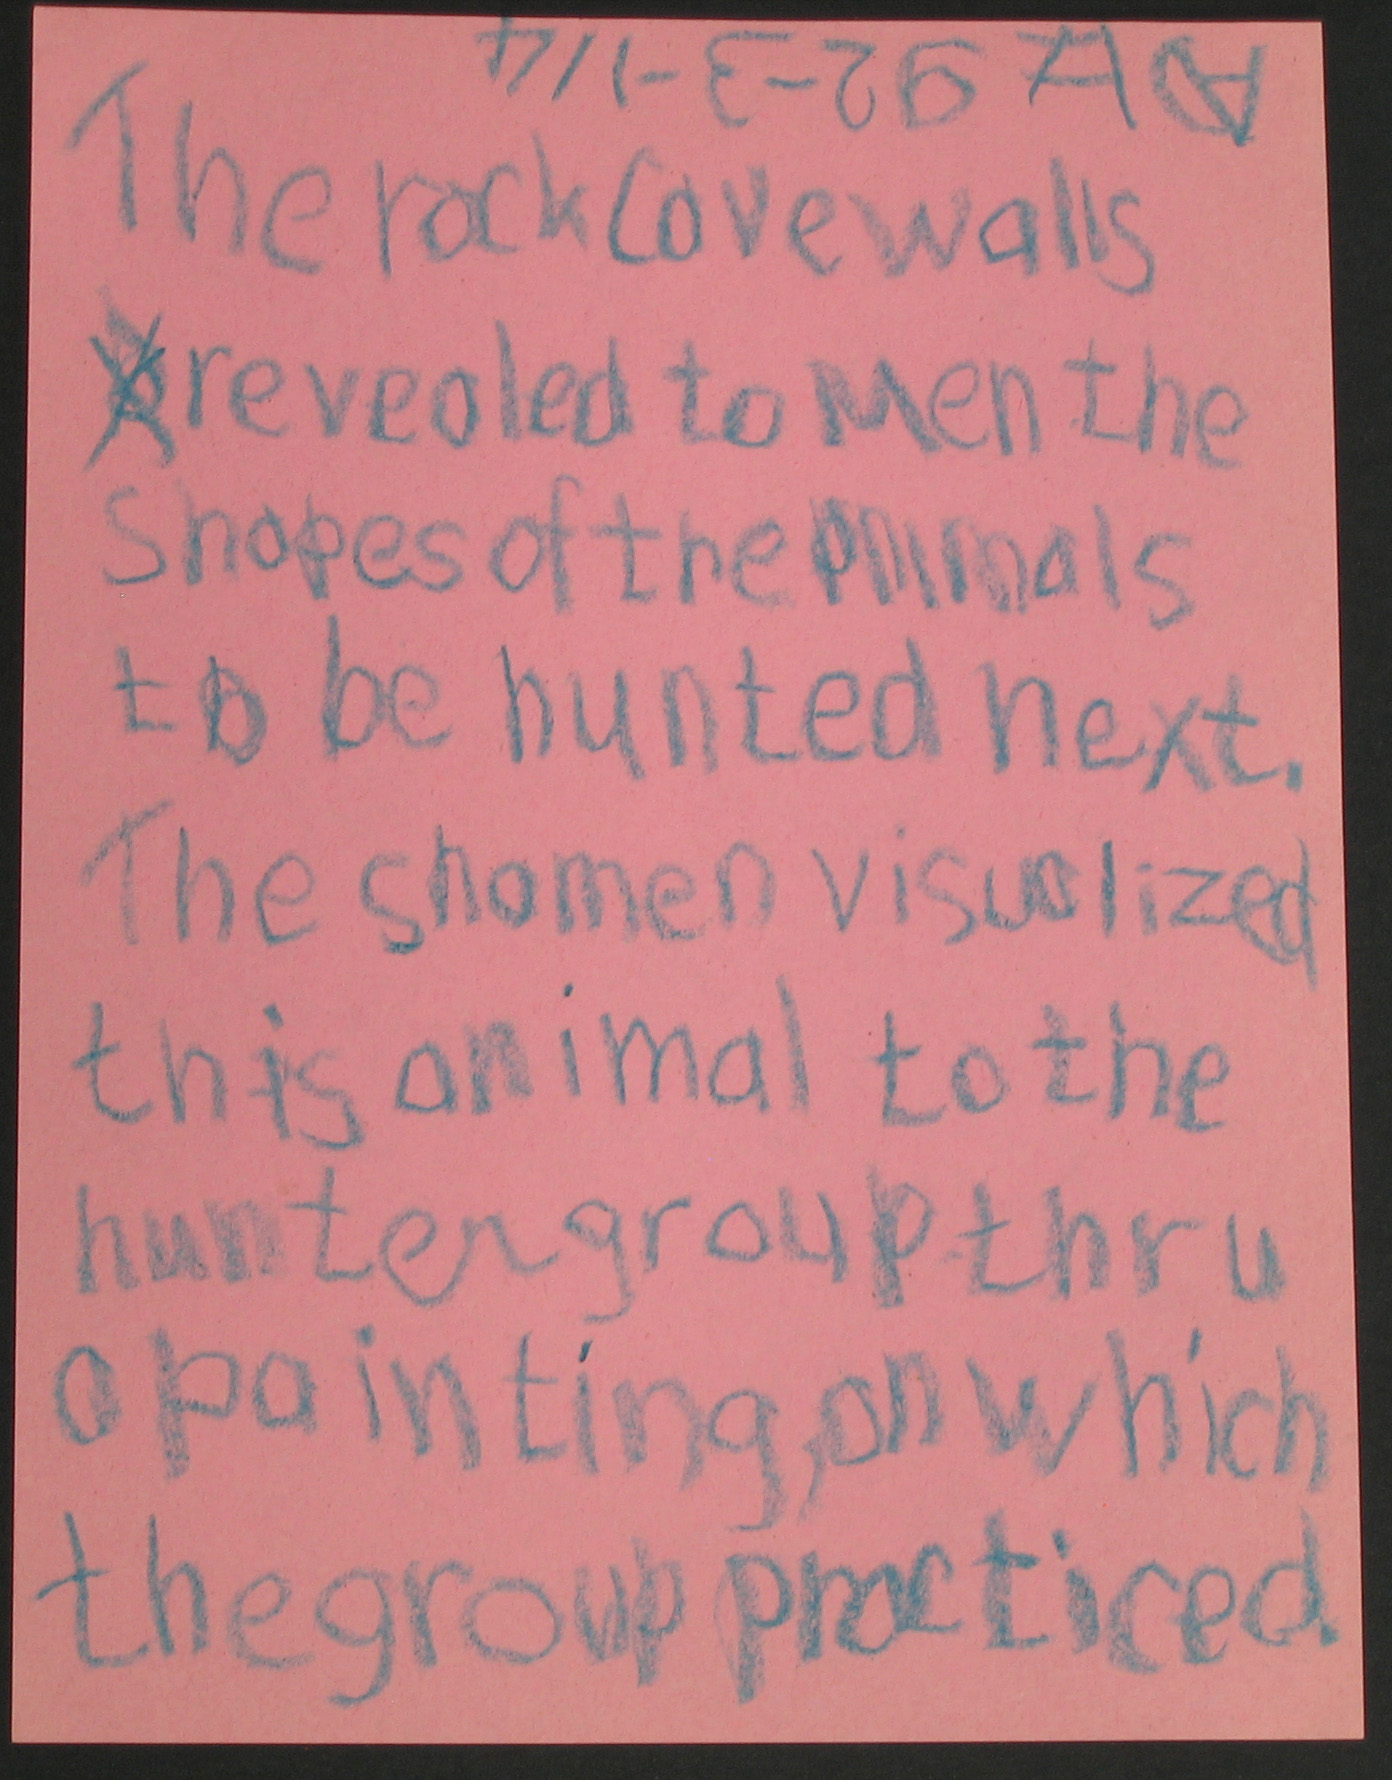 The rock Cave walls
revealed to Men the
Shapes of the animals
to be hunted next.
The shamen visualized
this animal to the
hunter group thru
a painting, on which
the group practiced.